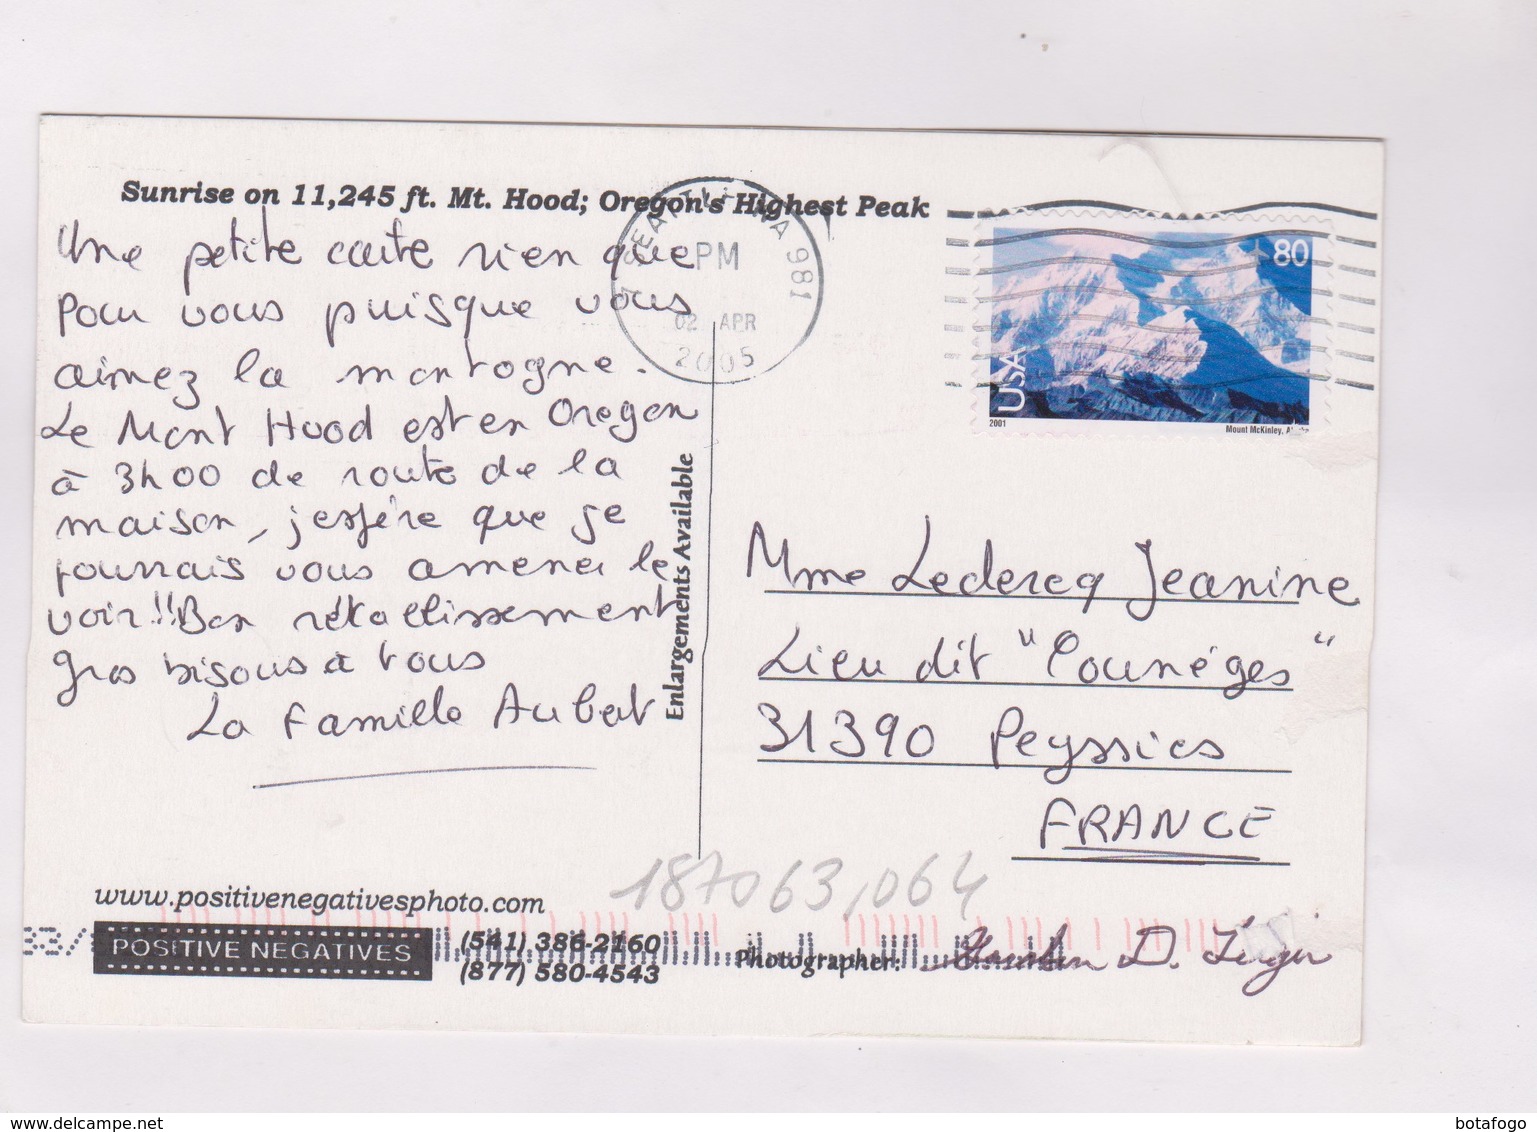 Sunrise on 11,245 ft. Mt. Hood; Oregon's Highest Peak
Une petite carte rien que
pour vous puisque vous
aimez la montagne.
Le Mont Hood est en Oregon
à 3h00 de route de la
maison, j'espère que je
pourrais vous amener le
voir!! Bon rétablissement
gros bisous à tous
La Famille Aubert
SEATTLE WA 981
PM
02 APR
2005
80
USA
2001
Mount McKinley,
Enlargements Available
Mme Leclercq Jeanine
Lieu dit "Pounéges"
31390 Peyssies
FRANCE
187063,064
www.positivenegativesphoto.com
POSITIVE NEGATIVES
(541) 386-2160
(877) 580-4543
Photographer:
D.
Delcampe.net
botafogo